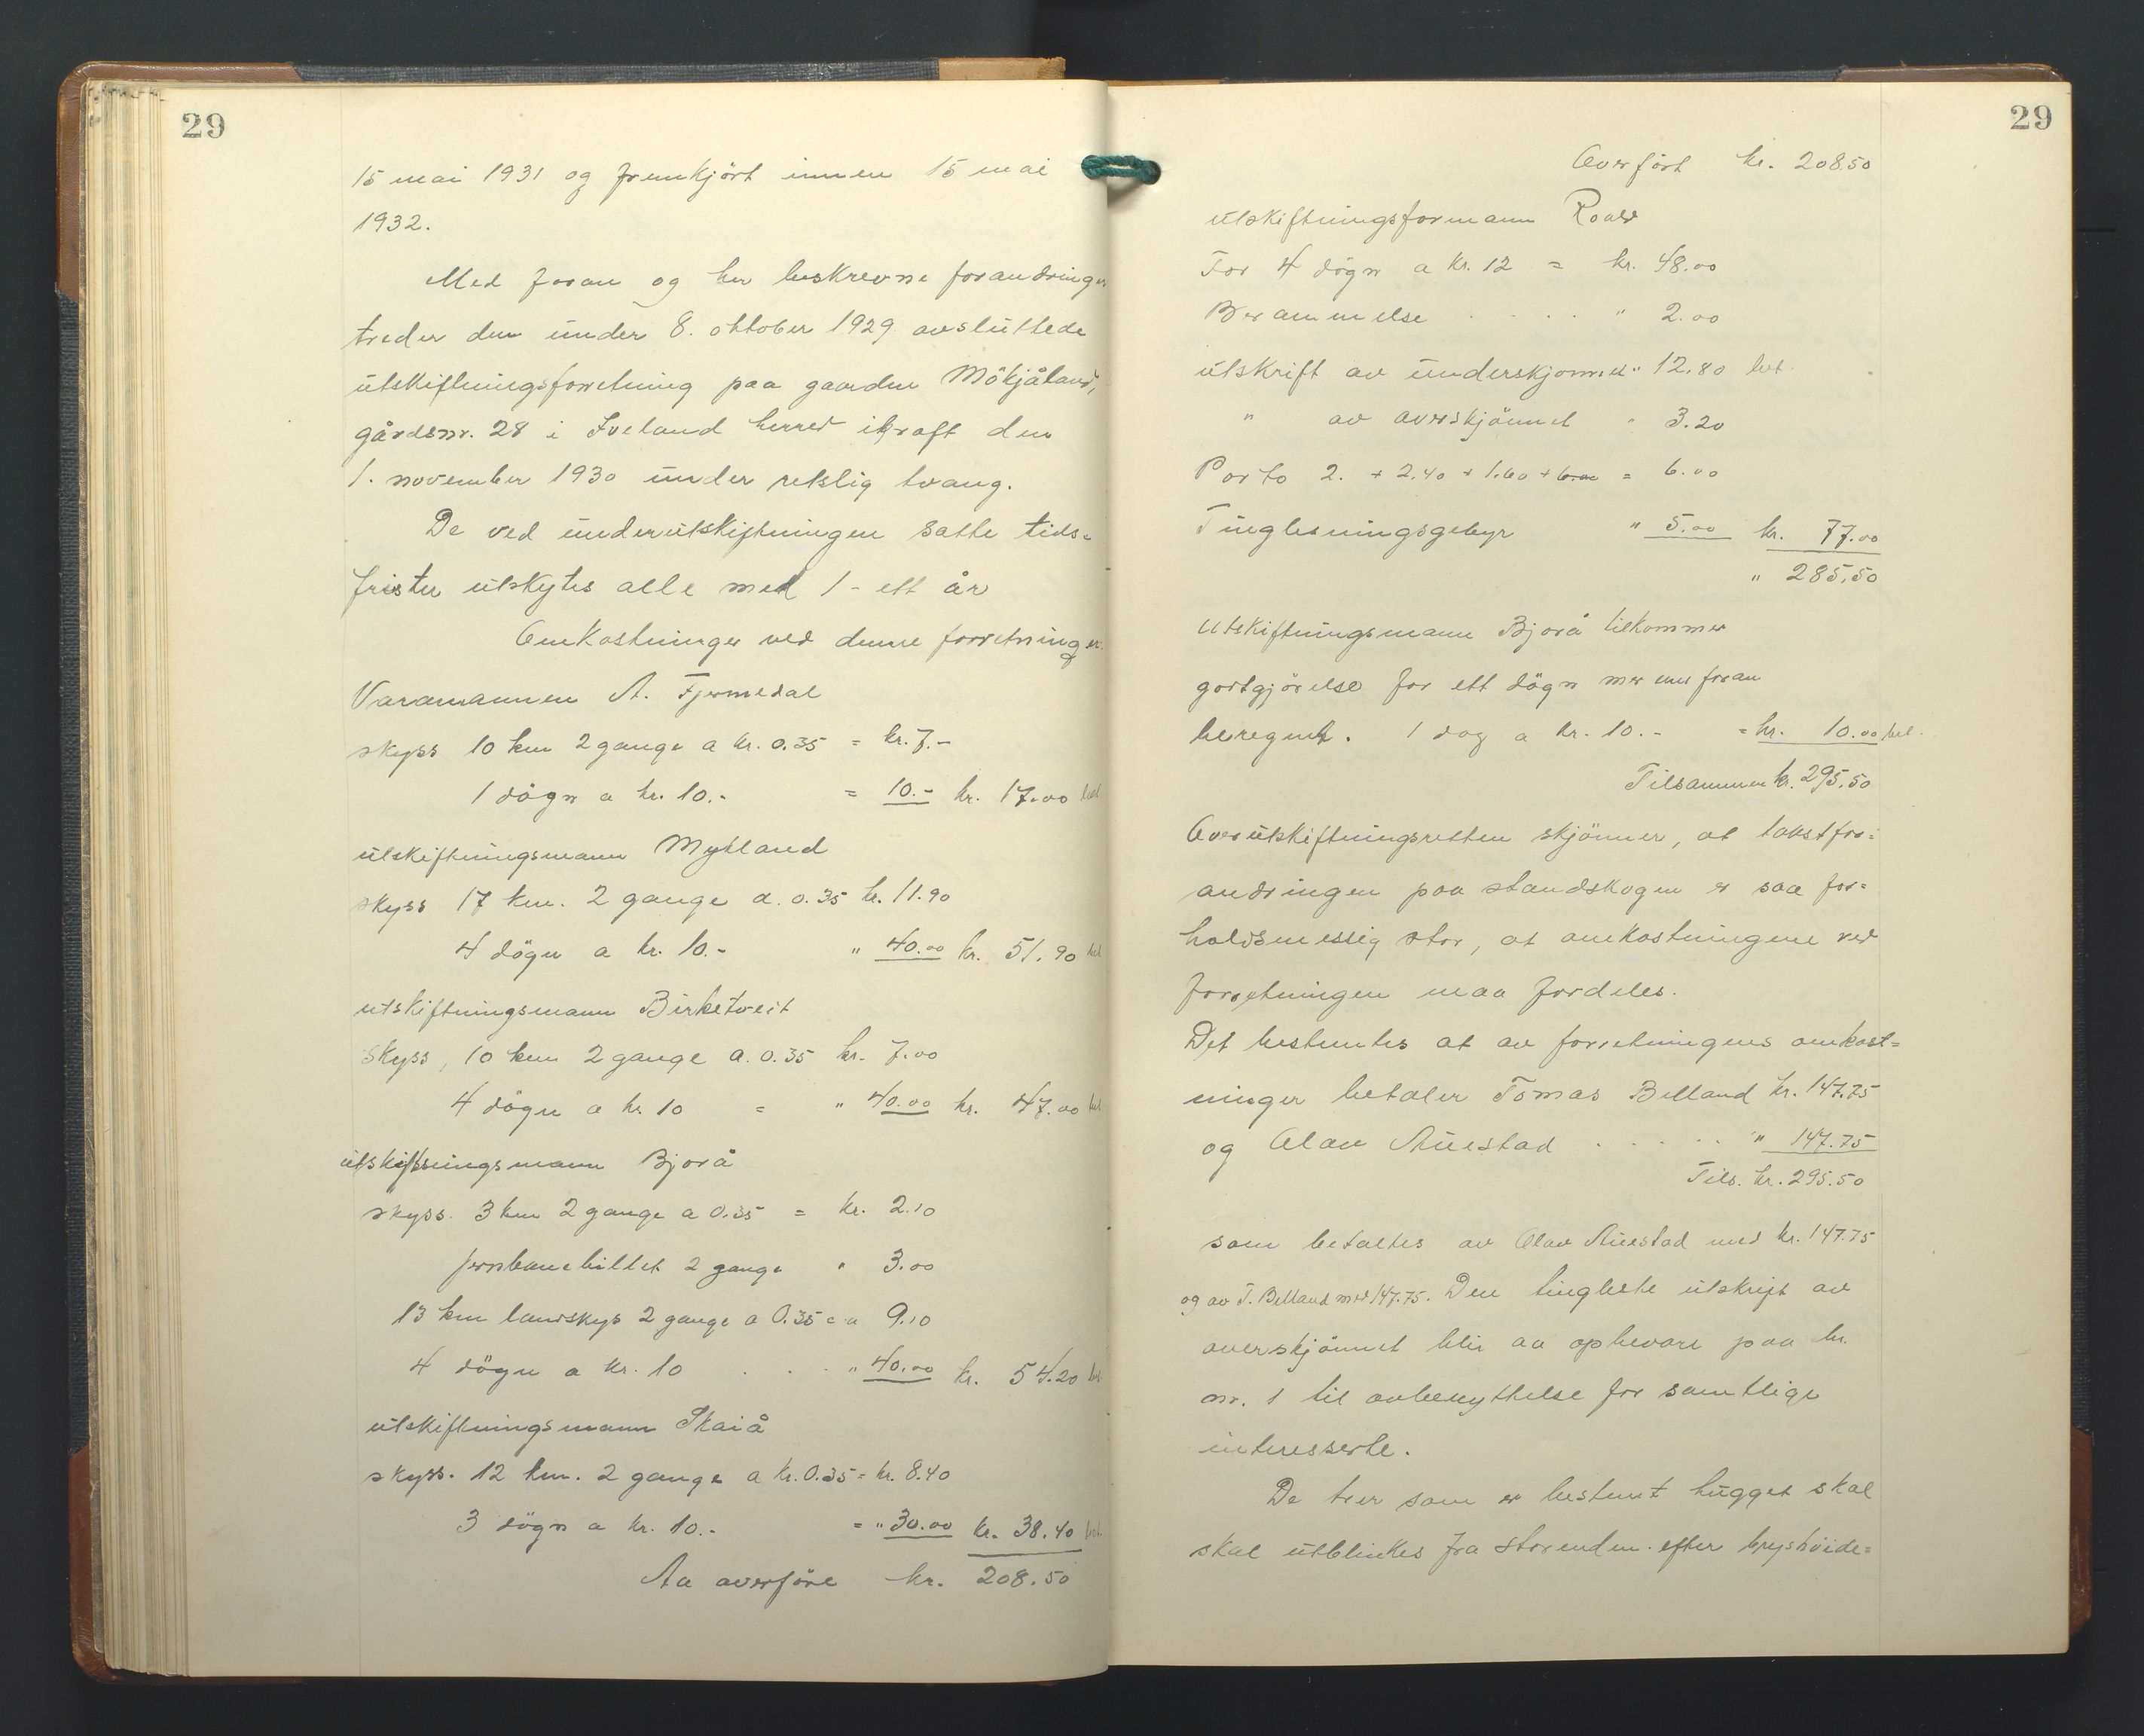 29
15 mai 1931 og fremkjört innen 15 mai
1932.
Med foran og her beskrevne forandringer
treder den under 8. oktober 1929 avsluttede
utskiftningsforretning paa gaarden Mökjåland,
gårdsnr. 28 i Iveland herred ikraft den
1. november 1930 under retslig tvang.
De ved underutskiftningen satte tids=
frister utskytes alle med 1 - ett år
Omkostninger ved denne forretning er.
Varamannen A. Fjermedal
skyss 10 km 2 gange a kr. 0.35 = kr. 7.-
1 dögn a kr. 10.- = 10.- kr. 17.00 bet
utskiftningsmann Mykland
skyss 17 km. 2 gange a. 0.35 kr. 11.90
4 dögn a kr. 10.- " 40.00 kr. 51.90 bet
utskiftningsmann Birketveit
Skyss, 10 km 2 gange a. 0.35 kr. 7.00
4 dögn a kr 10 = " 40.00 kr. 47.00 bet
utskiftningsmann Bjorå
skyss. 3 km 2 gange a 0.35 = kr. 2.10
jernbanebillet 2 gange " 3.00
13 km landskys 2 gange a 0.35 = " 9.10
4 dögn a kr. 10 . . . " 40.00 kr. 54.20 bet
utskiftningsmann Skaiå
skyss. 12 km. 2 gange a kr. 0.35 = kr. 8.40
3 dögn a kr. 10.- = " 30.00 kr. 38.40 bet
Aa overföre kr. 208.50
29
Overfört kr. 208.50
utskiftningsformann Roald
For 4 dögn a kr. 12 = kr. 48.00
Berammelse . . . . " 2.00
utskrift av underskjönnet " 12.80 bet.
" av overskjönnet " 3.20
Porto 2. + 2.40 + 1.60 + 6.00 = 6.00
Tinglesningsgebyr " 5.00 kr. 77.00
" 285.50
Utskiftningsmann Bjorå tilkommer
gortgjörelse for ett dögn mer enn foran
beregnet. 1 dag a kr. 10.- = kr. 10.00 bet.
Tilsammen kr. 295.50
Overutskiftningsretten skjönner, at takstfor=
andringen paa standskogen er saa for=
holdsmessig stor, at omkostningene ved
forretningen maa fordeles.
Det bestemtes at av forretningens omkost=
ninger betaler Tomas Belland kr. 147.75
og Olav Auestad . . . . . " 147.75
Tils. kr. 295.50
som betaltes av Olav Auestad med kr. 147.75
og av T. Belland med 147.75. Den tingleste utskrift av
overskjönnet blir aa opbevare paa br.
nr. 1 til avbenyttelse for samtlige
interesserte.
De trer som er bestemt hugget skal
skal utblinkes fra storenden efter brysthöide=